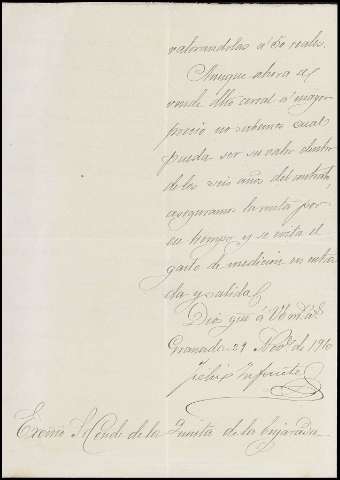 valorandolas a 60 reales.
Aunque ahora se
vende dho cereal a mayor
precio no sabemos cual
pueda ser su valor dentro
de los seis años del contrato,
aseguramos la renta por
su tiempo y se evita el
gasto de medicion en entra
da y salida
Dios gue á Vd ms as
Granada 29 Nove de 1910
Felix Infante
Excmo Sr Conde de la Quinta de la Enjarada